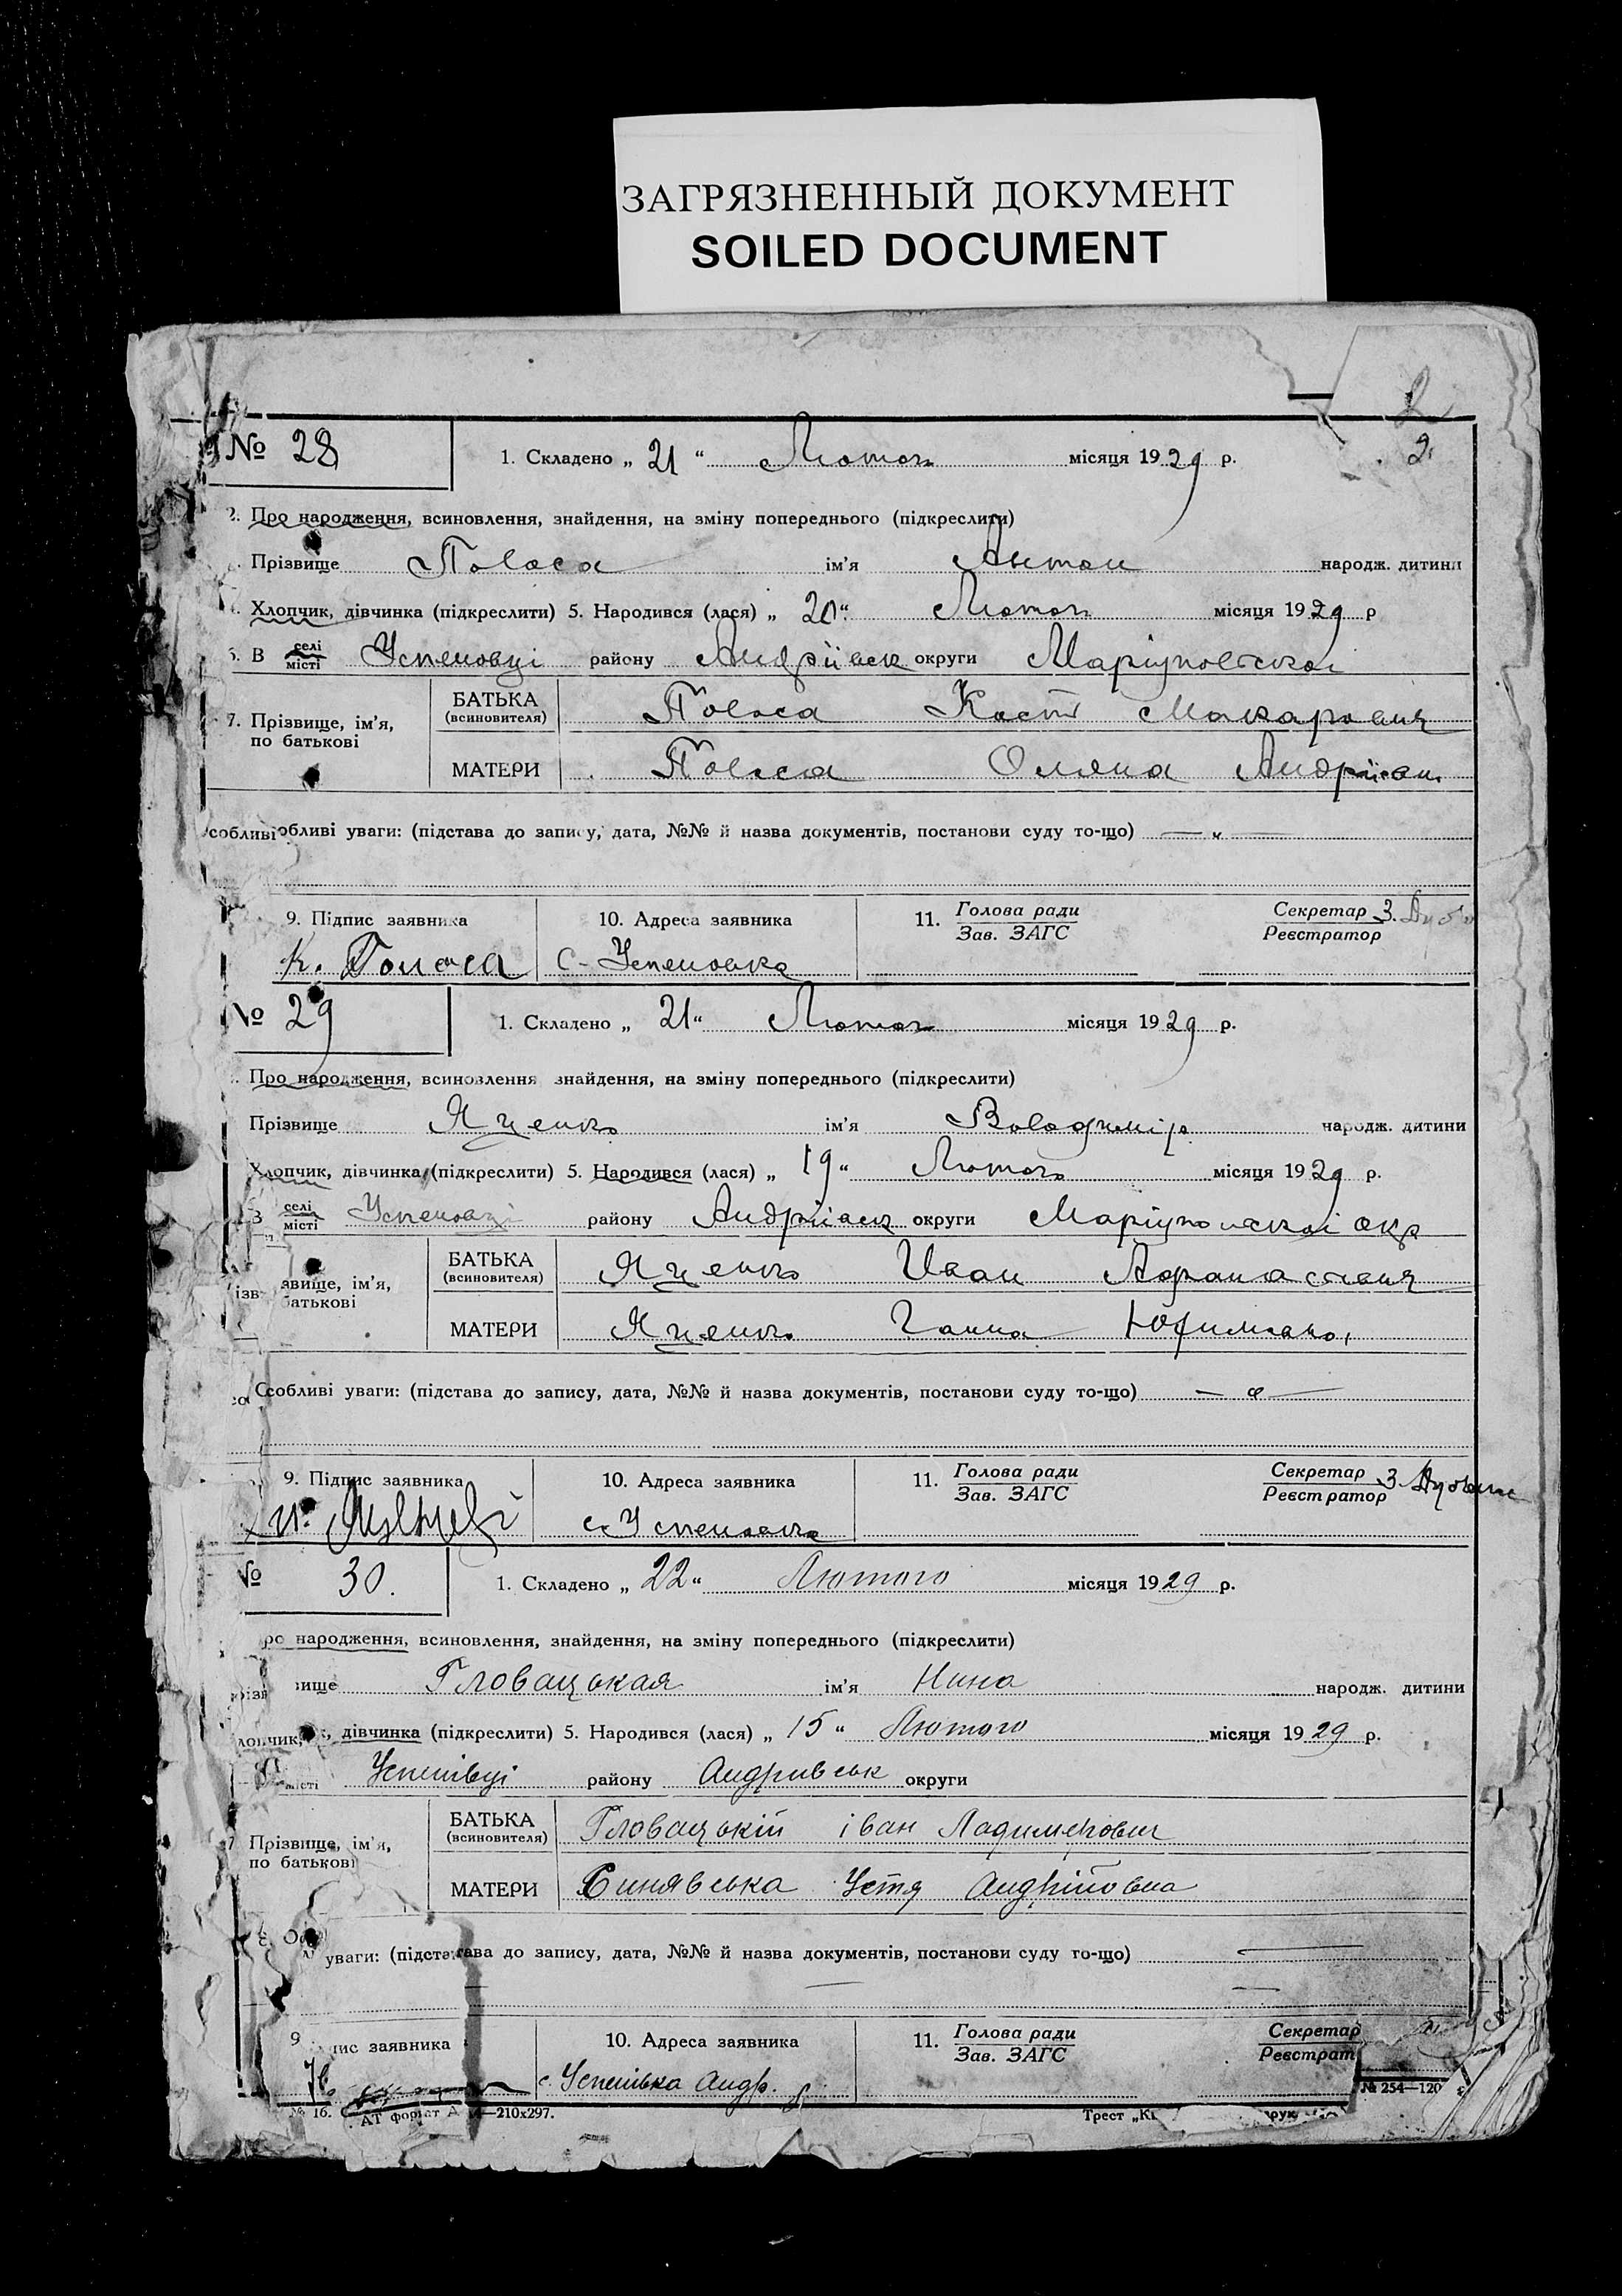 ЗАГРЯЗНЕННЫЙ ДОКУМЕНТ
SOILED DOCUMENT
2
2
№ 28 1. Складено „ 21 “ Лютого місяця 1929 р.
2. Про народження, всиновлення, знайдення, на зміну попереднього (підкреслити)
Прізвище Поваса ім’я Антон народж. дитини
Хлопчик, дівчинка (підкреслити) 5. Народився (лася) „ 20 “ Лютого місяця 1929 р
В селі місті Успеновці району Андріївск округи Маріупольскої
7. Прізвище, ім’я, по батькові БАТЬКА (всиновителя) Поваса Кость Макарович
МАТЕРИ Поваса Оляна Андріевн.
собливі обливі уваги: (підстава до запису, дата, №№ й назва документів, постанови суду то-що) — „ —
9. Підпис заявника 10. Адреса заявника 11. Голова ради Зав. ЗАГС Секретар Реєстратор З.
К. С-Успеновка
№ 29 1. Складено „ 21 “ Лютого місяця 1929 р.
Про народження, всиновлення знайдення, на зміну попереднього (підкреслити)
Прізвище Яценко ім’я Володимір народж. дитини
Хлопчик, дівчинка (підкреслити) 5. Народився (лася) „ 19 “ Лютого місяця 1929 р.
В селі місті Успеновці району Андріївск округи Маріупольскої окр
звище, ім’я, батькові БАТЬКА (всиновителя) Яценко Иван Афанасович
МАТЕРИ Яценко Ганна Юфимовно,
Особливі уваги: (підстава до запису, дата, №№ й назва документів, постанови суду то-що) — „ —
9. Підпис заявника 10. Адреса заявника 11. Голова ради Зав. ЗАГС Секретар Реєстратор З.
с. Успеновка
№ 30. 1. Складено „ 22 “ Лютого місяця 1929 р.
ро народження, всиновлення, знайдення, на зміну попереднього (підкреслити)
вище Гловацькая ім’я Нина народж. дитини
лопчик, дівчинка (підкреслити) 5. Народився (лася) „ 15 “ Лютого місяця 1929 р.
місті Успенівці району Андривськ округи
7 Прізвище, ім’я, по батькові БАТЬКА (всиновителя) Гловацькій іван Ладимерович
МАТЕРИ Синявська Устя Андрійовна
уваги: (підстава до запису, дата, №№ й назва документів, постанови суду то-що) —
9 пис заявника 10. Адреса заявника 11. Голова ради Зав. ЗАГС Секретар Реєстрат
с. Успенівка Андр.
№ 16. АТ формат А4—210х297. Трест „Ки друк № 254—120